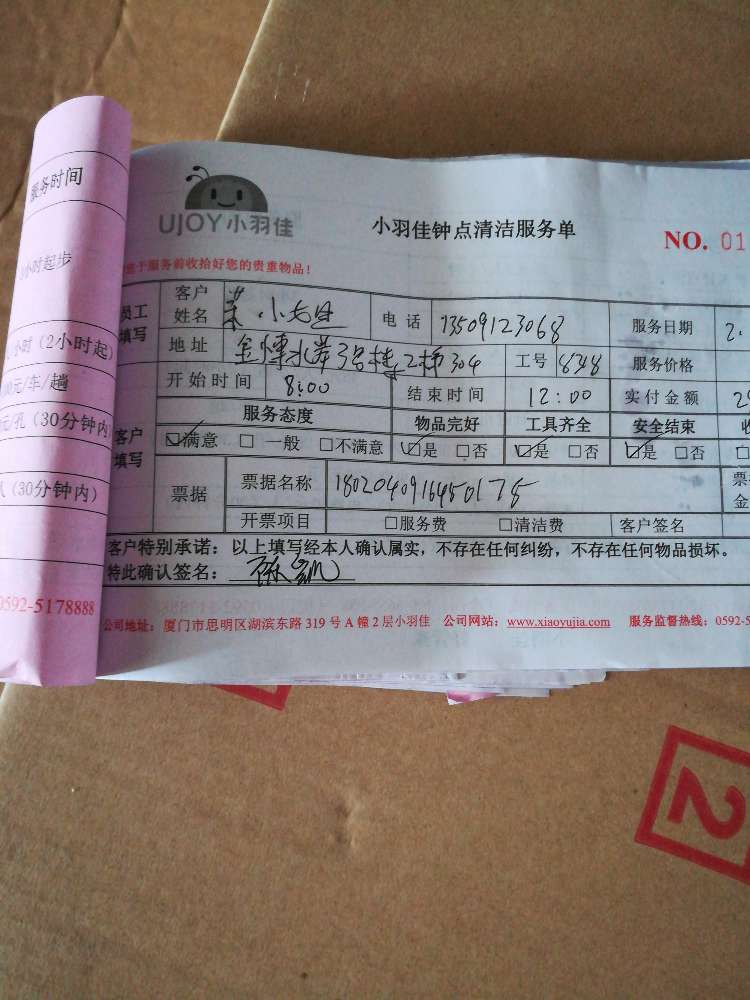 服务时间
小时起步
小时（2小时起）
00元/车/趟
元/孔（30分钟内
人（30分钟内）
0592-5178888
UJOY小羽佳
小羽佳钟点清洁服务单
NO. 01
于服务前收拾好您的贵重物品！
员工填写
客户姓名
电话 13509123068
服务日期 2.
地址 3号楼2梯304
工号 服务价格
开始时间 8:00
结束时间 12:00
实付金额 2
客户填写
服务态度 物品完好 工具齐全 安全结束
☑满意 □一般 □不满意 ☑是 □否 ☑是 □否 ☑是 □否
票据 票据名称 1802040916450175
票
金
开票项目 □服务费 □清洁费 客户签名
客户特别承诺：以上填写经本人确认属实，不存在任何纠纷，不存在任何物品损坏。
特此确认签名：
公司地址：厦门市思明区湖滨东路 319 号 A 幢 2 层小羽佳 公司网站：www.xiaoyujia.com 服务监督热线：0592-5
2